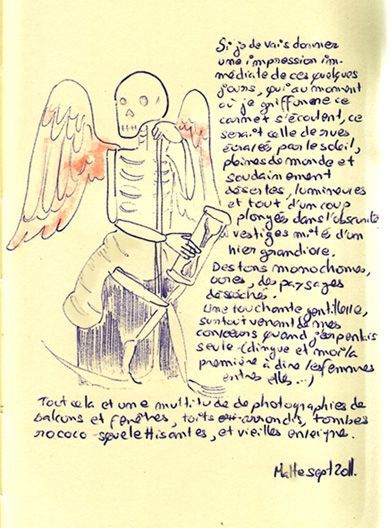 Si je devais donner
une impression im-
médiate de ces quelques
jours, qui au moment
où je griffonne ce
carnet s'écoulent, ce
serait celle de rues
écrasées par le soleil,
pleines de monde et
soudainement
désertes, lumineuses
et tout d'un coup
plongées dans l'obscurité
vestiges mité d'un
hier grandiose.
Des tons monochromes,
ocres, des paysages
desséchés.
Une touchante gentillesse,
surtout venant de mes
quand j'expensais
seule (dingue et moi la
première à dire les femmes
entre elles...)
Tout cela et une multitude de photographies de
balcons et fenêtres, toits arrondis, tombes
rococo-squelettisantes, et vieilles enseigne.
Malte sept 2011.